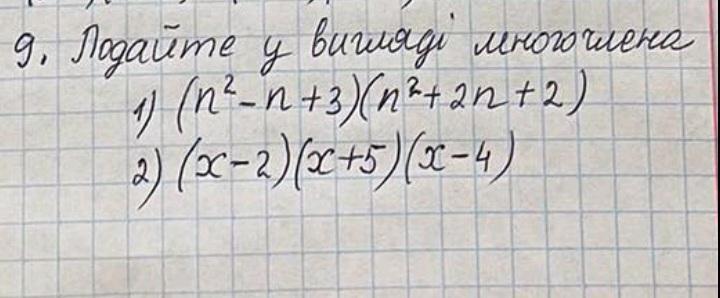 9. Подайте у вигляді многочлена
1) (n²-n+3)(n²+2n+2)
2) (x-2)(x+5)(x-4)